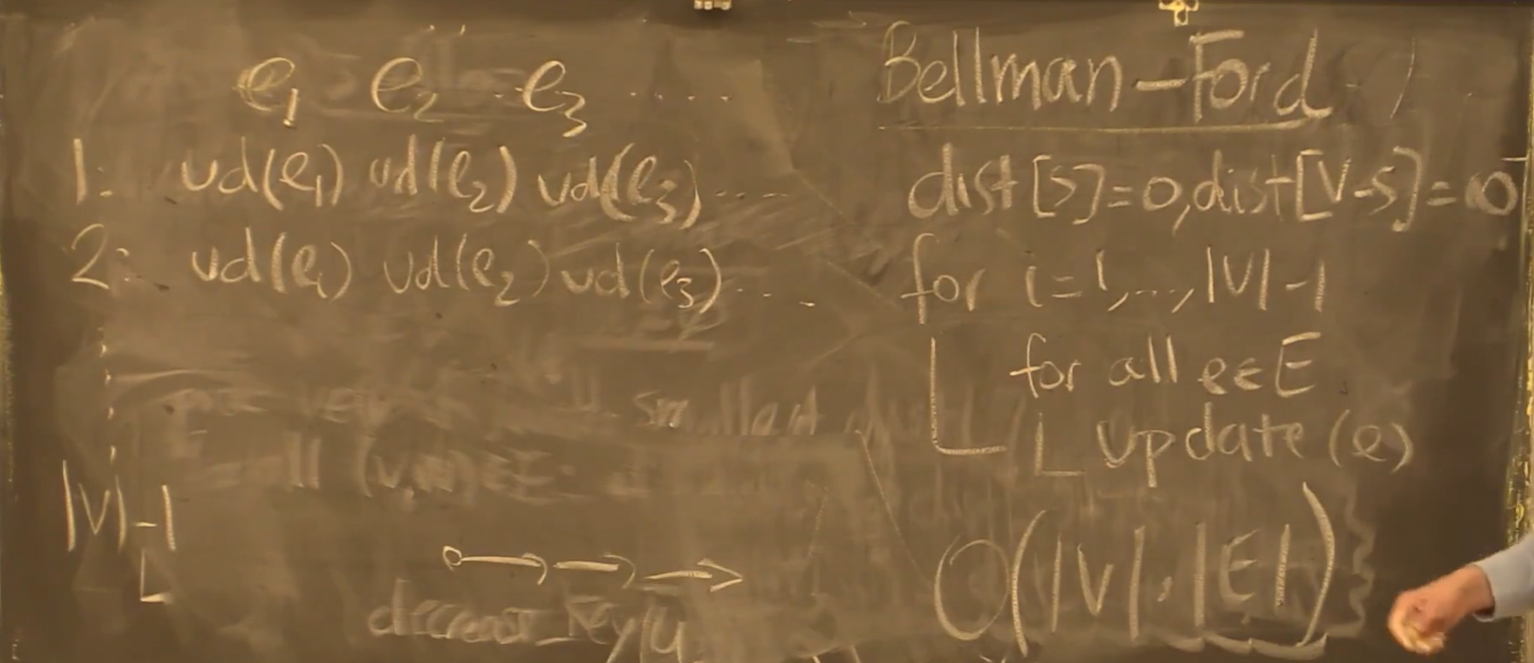 e₁ e₂ e₃ .....
1: ud(e₁) ud(e₂) ud(e₃) ....
2: ud(e₁) ud(e₂) ud(e₃) ....
|V|-1
decrease_key
Bellman-Ford
dist[s]=0, dist[V-s]=∞
for i=1,...,|V|-1
for all e∈E
update(e)
O(|V|·|E|)